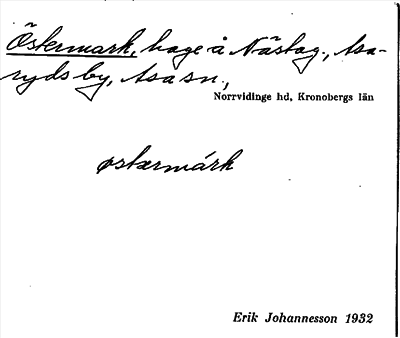 Östermark, hage å Nästag., Asa-
ryds by, Asa sn.,
Norrvidinge hd, Kronobergs län
østærmárk
Erik Johannesson 1932